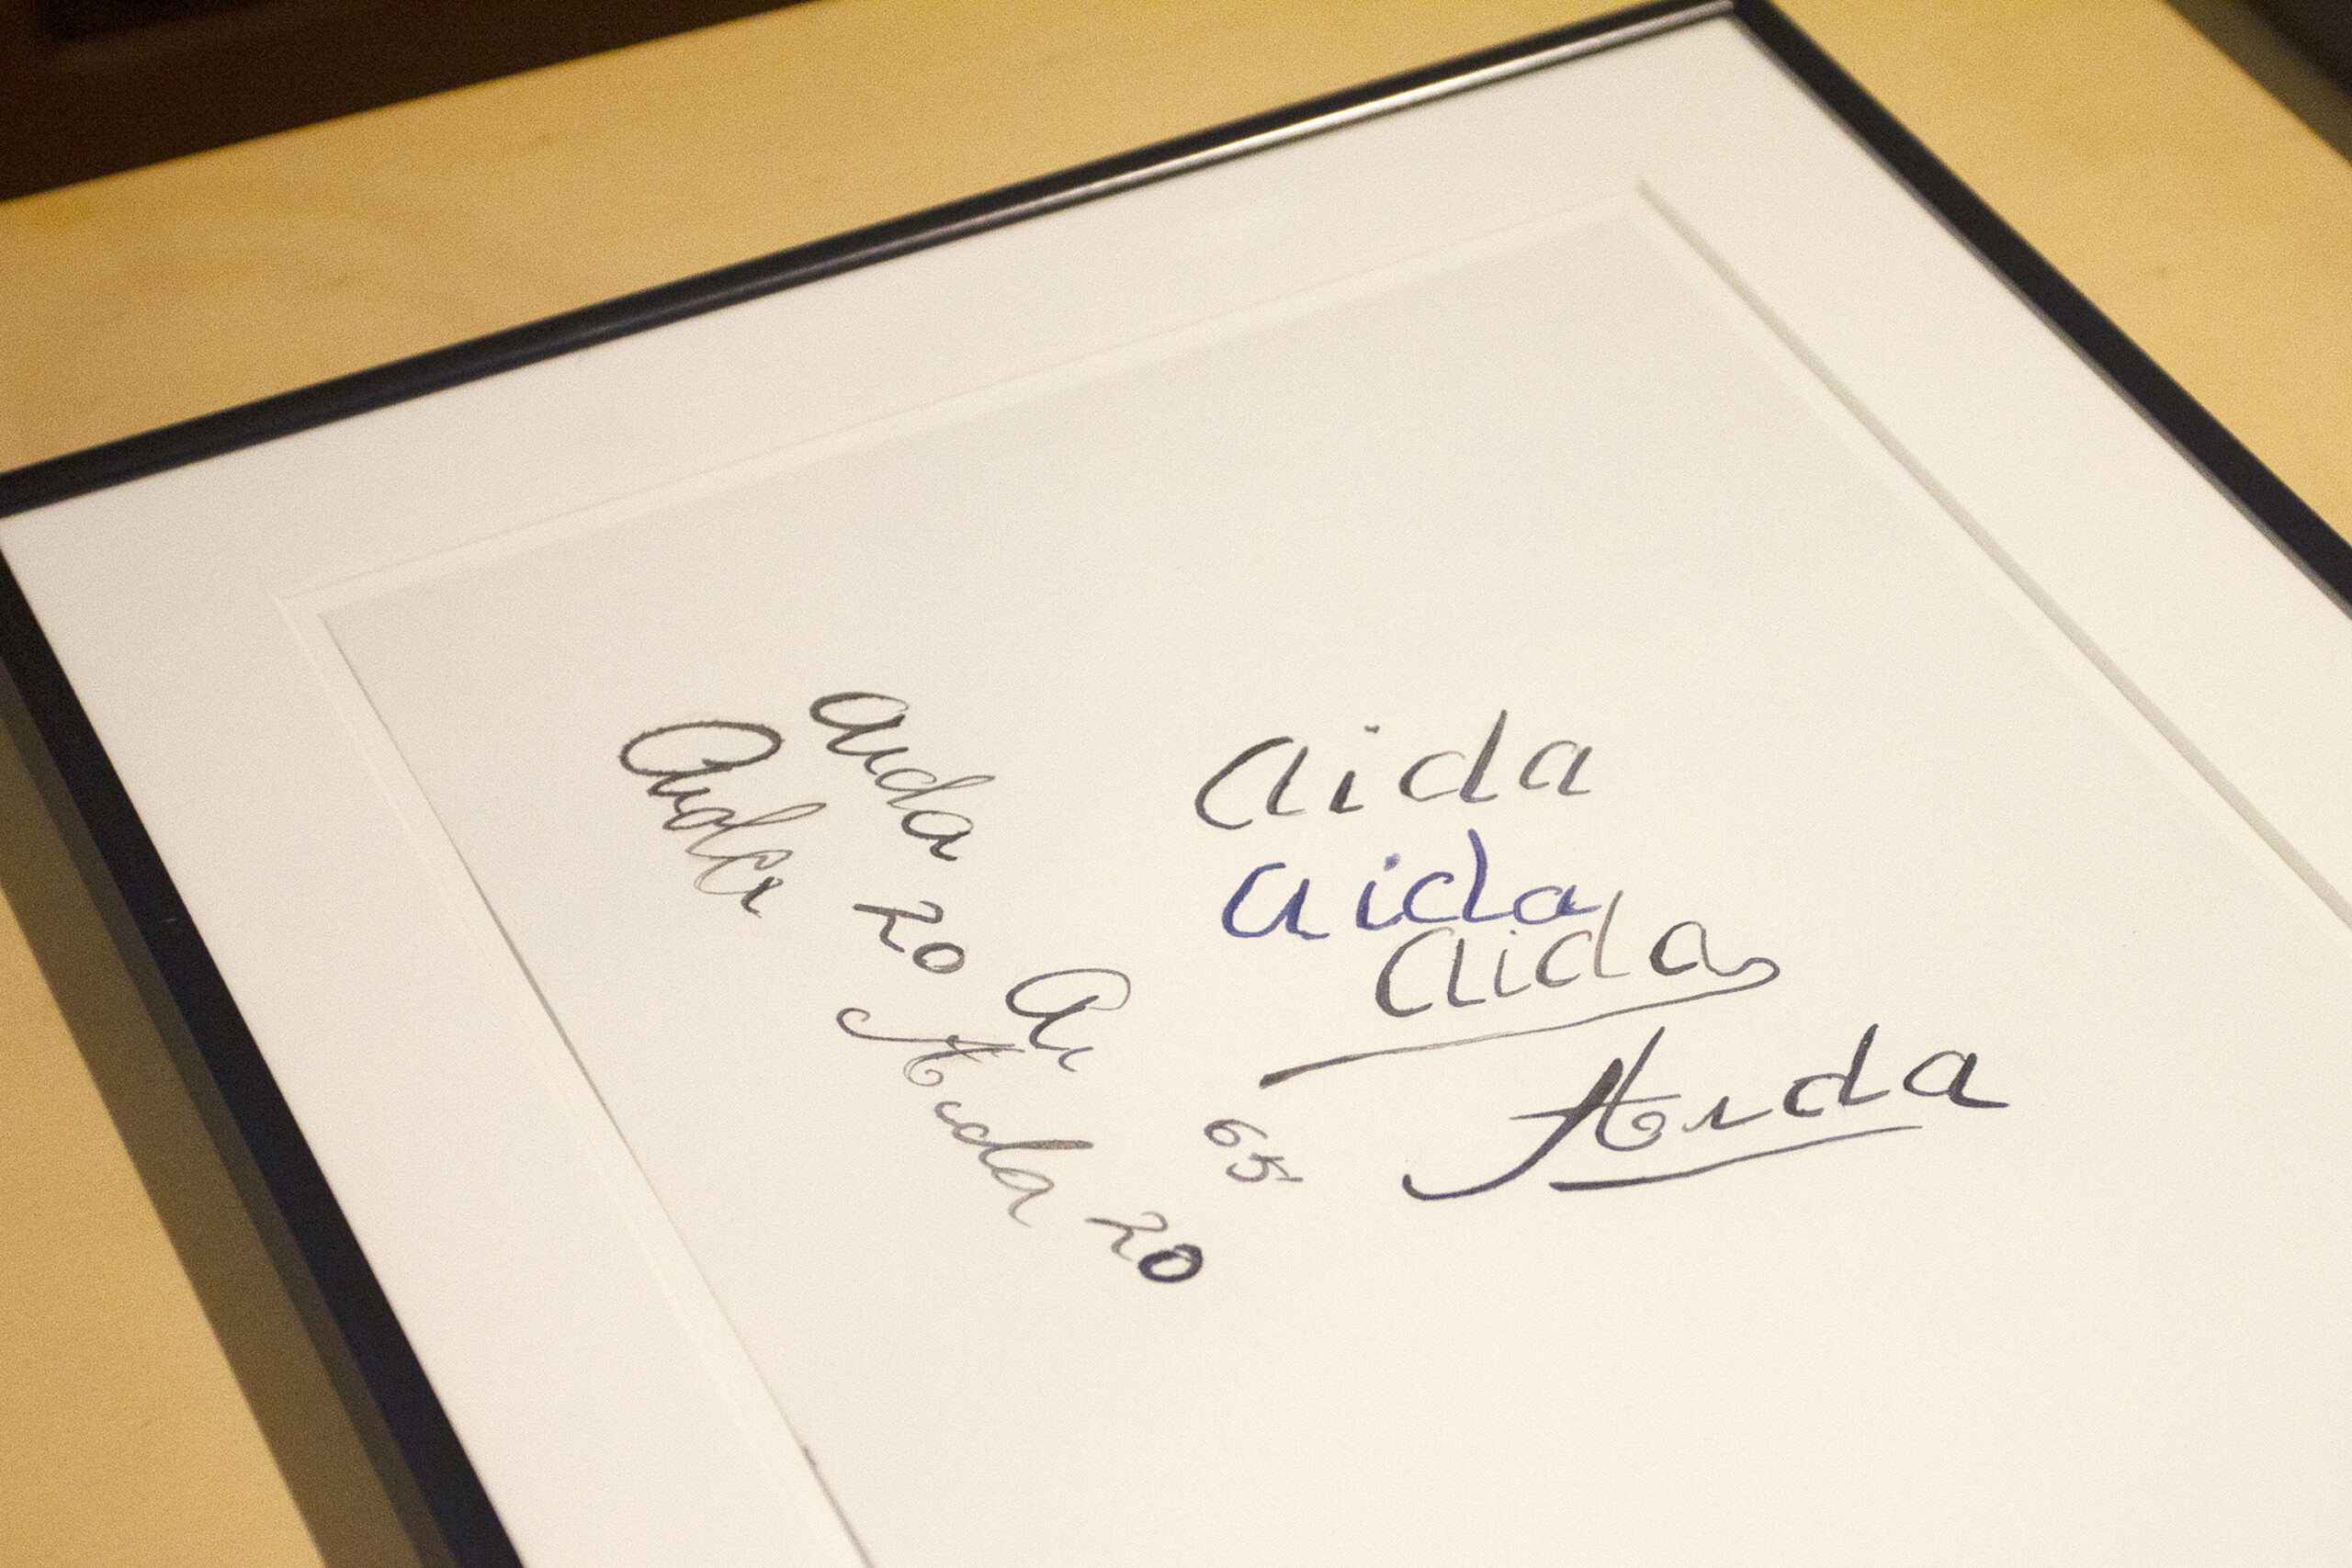 aida
aida
aida
Aida
aida
20
Aida
Ai
Aida 20
65